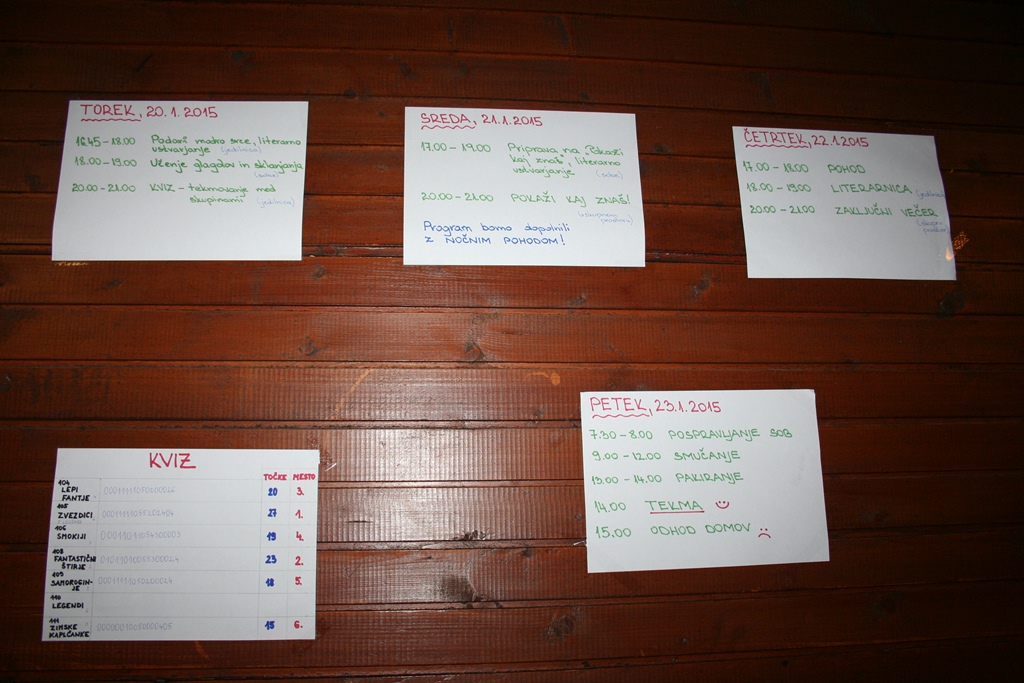 TOREK, 20.1.2015
16.45 – 18.00 Podari modro srce, literarno
ustvarjanje (jedilnica)
18.00 – 19.00 Učenje glagolov in sklanjanja
(sobe)
20.00 – 21.00 KVIZ – tekmovanje med
skupinami (jedilnica)
SREDA, 21.1.2015
17.00 – 19.00 Priprava na Pokaži
kaj znaš, literarno
ustvarjanje (sobe)
20.00 – 21.00 POKAŽI KAJ ZNAŠ!
Program bomo dopolnili
Z NOČNIM POHODOM!
ČETRTEK, 22.1.2015
17.00 – 18.00 POHOD
18.00 – 19.00 LITERARNICA (jedilnica)
20.00 – 21.00 ZAKLJUČNI VEČER
PETEK, 23.1.2015
7.30 – 8.00 POSPRAVLJANJE SOB
9.00 – 12.00 SMUČANJE
13.00 – 14.00 PAKIRANJE
14.00 TEKMA
15.00 ODHOD DOMOV
KVIZ
TOČKE MESTO
104 LEPI FANTJE 20 3.
105 ZVEZDICI 27 1.
106 SMOKIJI 19 4.
108 FANTASTIČNI ŠTIRJE 23 2.
109 SAMOROGINJE 18 5.
110 LEGENDI
111 ZIMSKE KAPLČANKE 15 6.